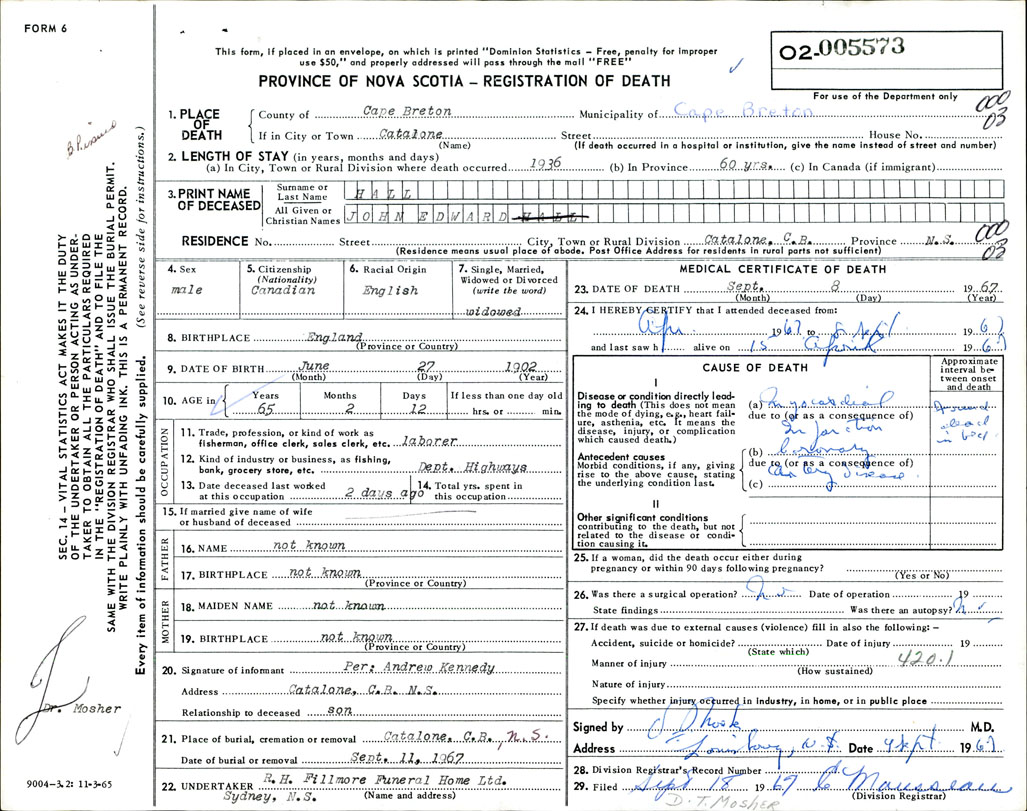 FORM 6
This form, if placed in an envelope, on which is printed "Dominion Statistics – Free, penalty for improper
use $50," and properly addressed will pass through the mail "FREE"
PROVINCE OF NOVA SCOTIA – REGISTRATION OF DEATH
02-005573
For use of the Department only
000
03
1. PLACE OF DEATH
County of Cape Breton Municipality of Cape Breton
If in City or Town Catalone Street House No.
(Name) (If death occurred in a hospital or institution, give the name instead of street and number)
2. LENGTH OF STAY (in years, months and days)
(a) In City, Town or Rural Division where death occurred 1936 (b) In Province 60 yrs. (c) In Canada (if immigrant)
3. PRINT NAME OF DECEASED
Surname or Last Name HALL
All Given or Christian Names JOHN EDWARD HALL
000
03
RESIDENCE No. Street City, Town or Rural Division Catalone, C.B. Province N.S.
(Residence means usual place of abode. Post Office Address for residents in rural parts not sufficient)
4. Sex
male
5. Citizenship
(Nationality)
Canadian
6. Racial Origin
English
7. Single, Married,
Widowed or Divorced
(write the word)
widowed
8. BIRTHPLACE England
(Province or Country)
9. DATE OF BIRTH June 27 1902
(Month) (Day) (Year)
10. AGE in
Years Months Days If less than one day old
65 2 12 hrs. or min.
OCCUPATION
11. Trade, profession, or kind of work as
fisherman, office clerk, sales clerk, etc. laborer
12. Kind of industry or business, as fishing,
bank, grocery store, etc. Dept. Highways
13. Date deceased last worked
at this occupation 2 days ago
14. Total yrs. spent in
this occupation
15. If married give name of wife
or husband of deceased
FATHER
16. NAME not known
17. BIRTHPLACE not known
(Province or Country)
MOTHER
18. MAIDEN NAME not known
19. BIRTHPLACE not known
(Province or Country)
20. Signature of informant Per: Andrew Kennedy
Address Catalone, C.B. N.S.
Relationship to deceased son
21. Place of burial, cremation or removal Catalone, C.B., N.S.
Date of burial or removal Sept. 11, 1967
22. UNDERTAKER R.H. Fillmore Funeral Home Ltd.
Sydney, N.S. (Name and address)
MEDICAL CERTIFICATE OF DEATH
23. DATE OF DEATH Sept. 8 1967
(Month) (Day) (Year)
24. I HEREBY CERTIFY that I attended deceased from:
1967 to 8 Sept 1967
and last saw h alive on 15 1967
CAUSE OF DEATH
Approximate
interval be-
tween onset
and death
I
Disease or condition directly lead-
ing to death (This does not mean
the mode of dying, e.g., heart fail-
ure, asthenia, etc. It means the
disease, injury, or complication
which caused death.)
(a) Myocardial
due to (or as a consequence of)
Infarction
dead
in bed
Antecedent causes
Morbid conditions, if any, giving
rise to the above cause, stating
the underlying condition last.
(b) Coronary
due to (or as a consequence of)
Artery disease
(c)
II
Other significant conditions
contributing to the death, but not
related to the disease or condi-
tion causing it.
25. If a woman, did the death occur either during
pregnancy or within 90 days following pregnancy?
(Yes or No)
26. Was there a surgical operation? No Date of operation 19
State findings Was there an autopsy? No
27. If death was due to external causes (violence) fill in also the following: –
Accident, suicide or homicide? Date of injury 19
(State which)
Manner of injury 420.1
(How sustained)
Nature of injury
Specify whether injury occurred in industry, in home, or in public place
Signed by M.D.
Address Louisbourg, N.S. Date 9 Sept 1967
28. Division Registrar's Record Number
29. Filed Sept 18 1967
(Division Registrar)
D.T. MOSHER
SEC. 14 – VITAL STATISTICS ACT MAKES IT THE DUTY
OF THE UNDERTAKER OR PERSON ACTING AS UNDER-
TAKER TO OBTAIN ALL THE PARTICULARS REQUIRED
IN THE "REGISTRATION OF DEATH" AND TO FILE THE
SAME WITH THE DIVISION REGISTRAR WHO SHALL ISSUE THE BURIAL PERMIT.
WRITE PLAINLY WITH UNFADING INK. THIS IS A PERMANENT RECORD.
Every item of information should be carefully supplied. (See reverse side for instructions.)
Dr. Mosher
9004-3.2: 11-3-65